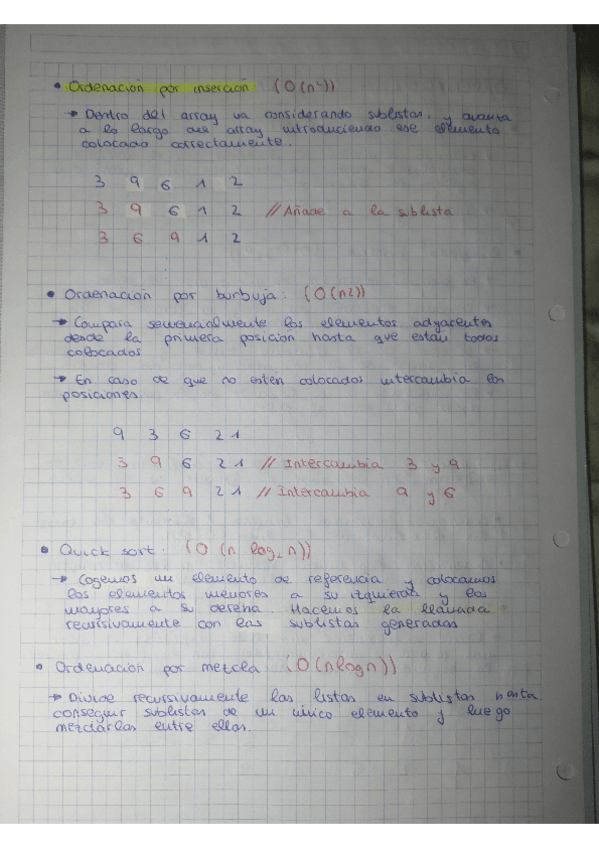 • Ordenación por inserción (O(n²))
→ Dentro del array va considerando sublistas, y avanza
a lo largo del array introduciendo ese elemento
colocado correctamente.
3 9 6 1 2
3 9 6 1 2 // Añade a la sublista
3 6 9 1 2
• Ordenación por burbuja: (O(n2))
→ Compara secuencialmente los elementos adyacentes
desde la primera posición hasta que estan todos
colocados
→ En caso de que no esten colocados intercambia las
posiciones.
9 3 6 2 1
3 9 6 2 1 // Intercambia 3 y 9
3 6 9 2 1 // Intercambia 9 y 6
• Quick sort: (O (n log₂ n))
→ Cogemos un elemento de referencia y colocamos
los elementos menores a su izquierda y los
mayores a su derecha. Hacemos la llamada
recursivamente con las sublistas generadas
• Ordenación por mezcla: (O(nlogn))
→ Divide recursivamente las listas en sublistas hasta
conseguir sublistas de un único elemento y luego
mezclarlas entre ellas.